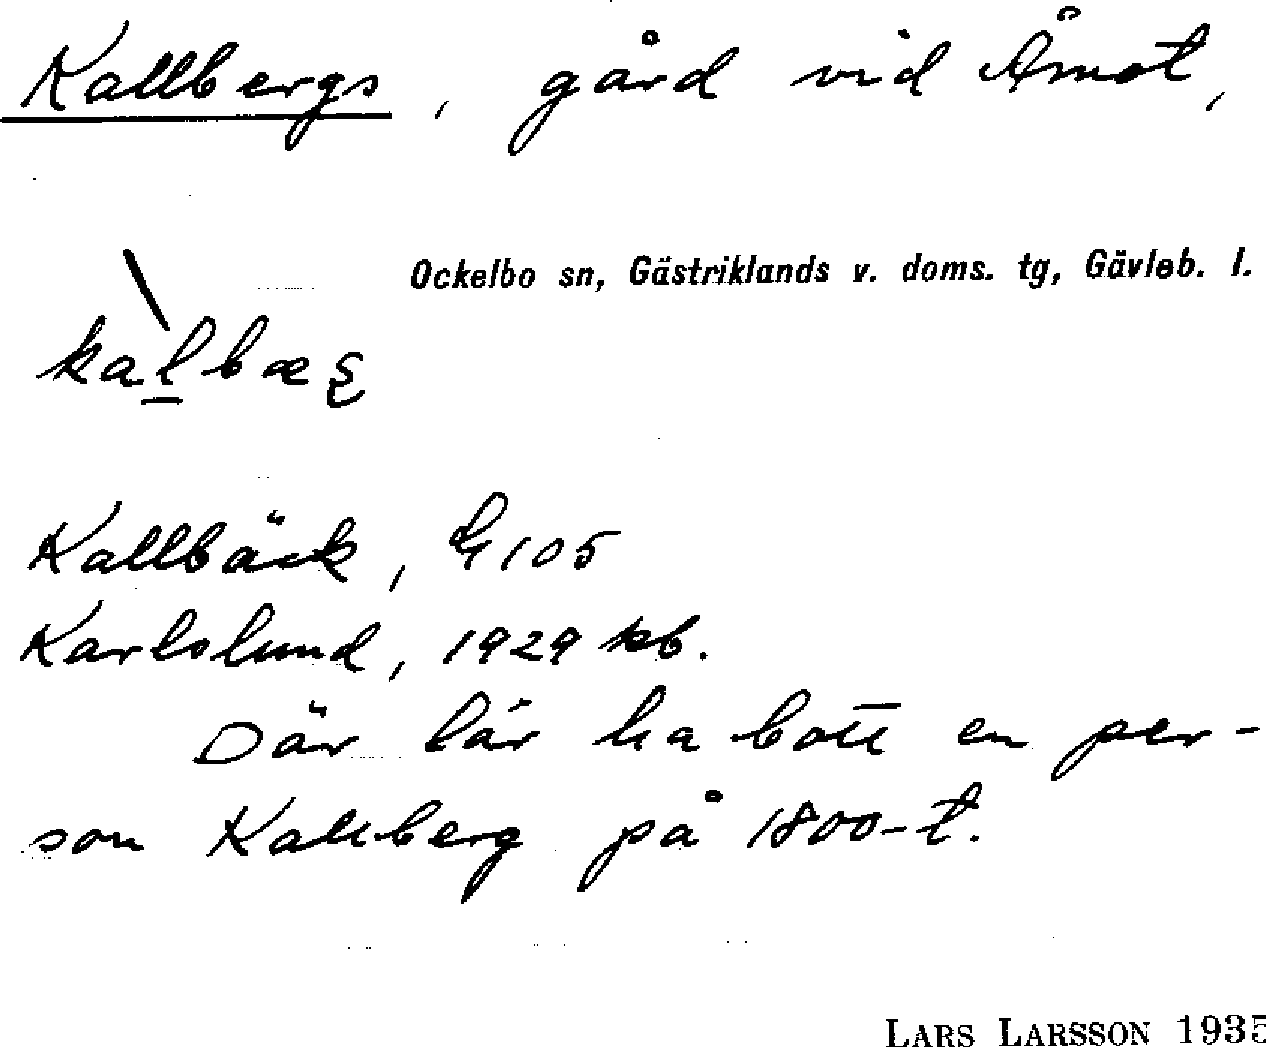 Kallbergs, gård vid Åmot,
Ockelbo sn, Gästriklands v. doms. tg, Gävleb. l.
Kallbäck, G 105
Karlslund, 1929 kb.
Där lär ha bott en per-
son Kallberg på 1800-t.
LARS LARSSON 1935